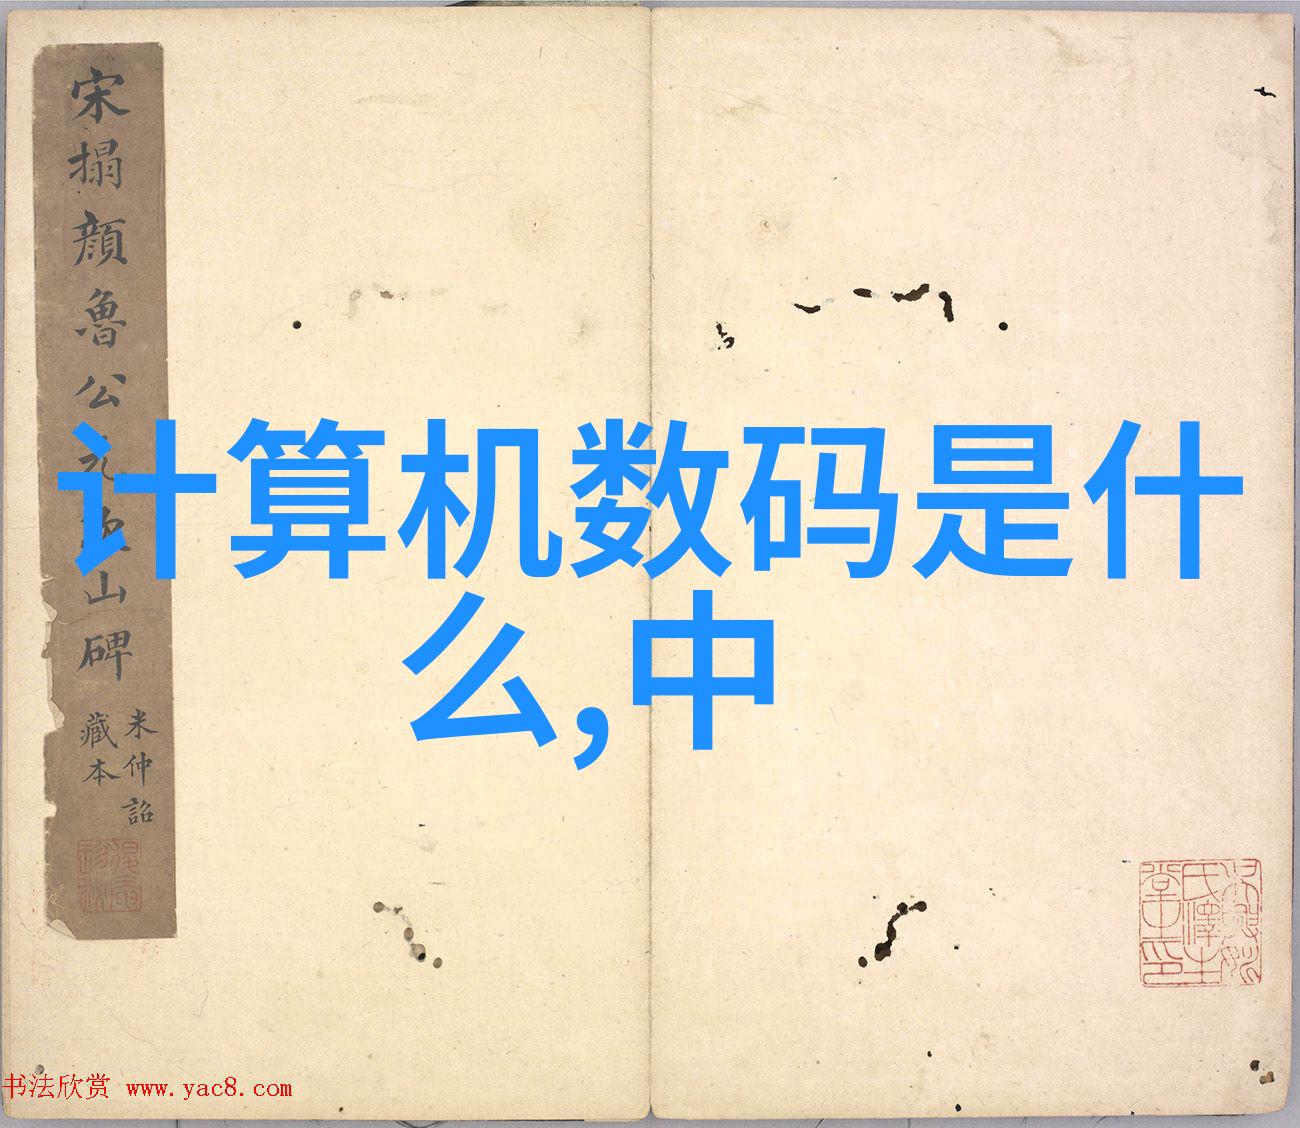 宋搨顔魯公元次山碑
米仲詔
藏本
计算机数码是什
么,中
书法欣赏 www.yac8.com